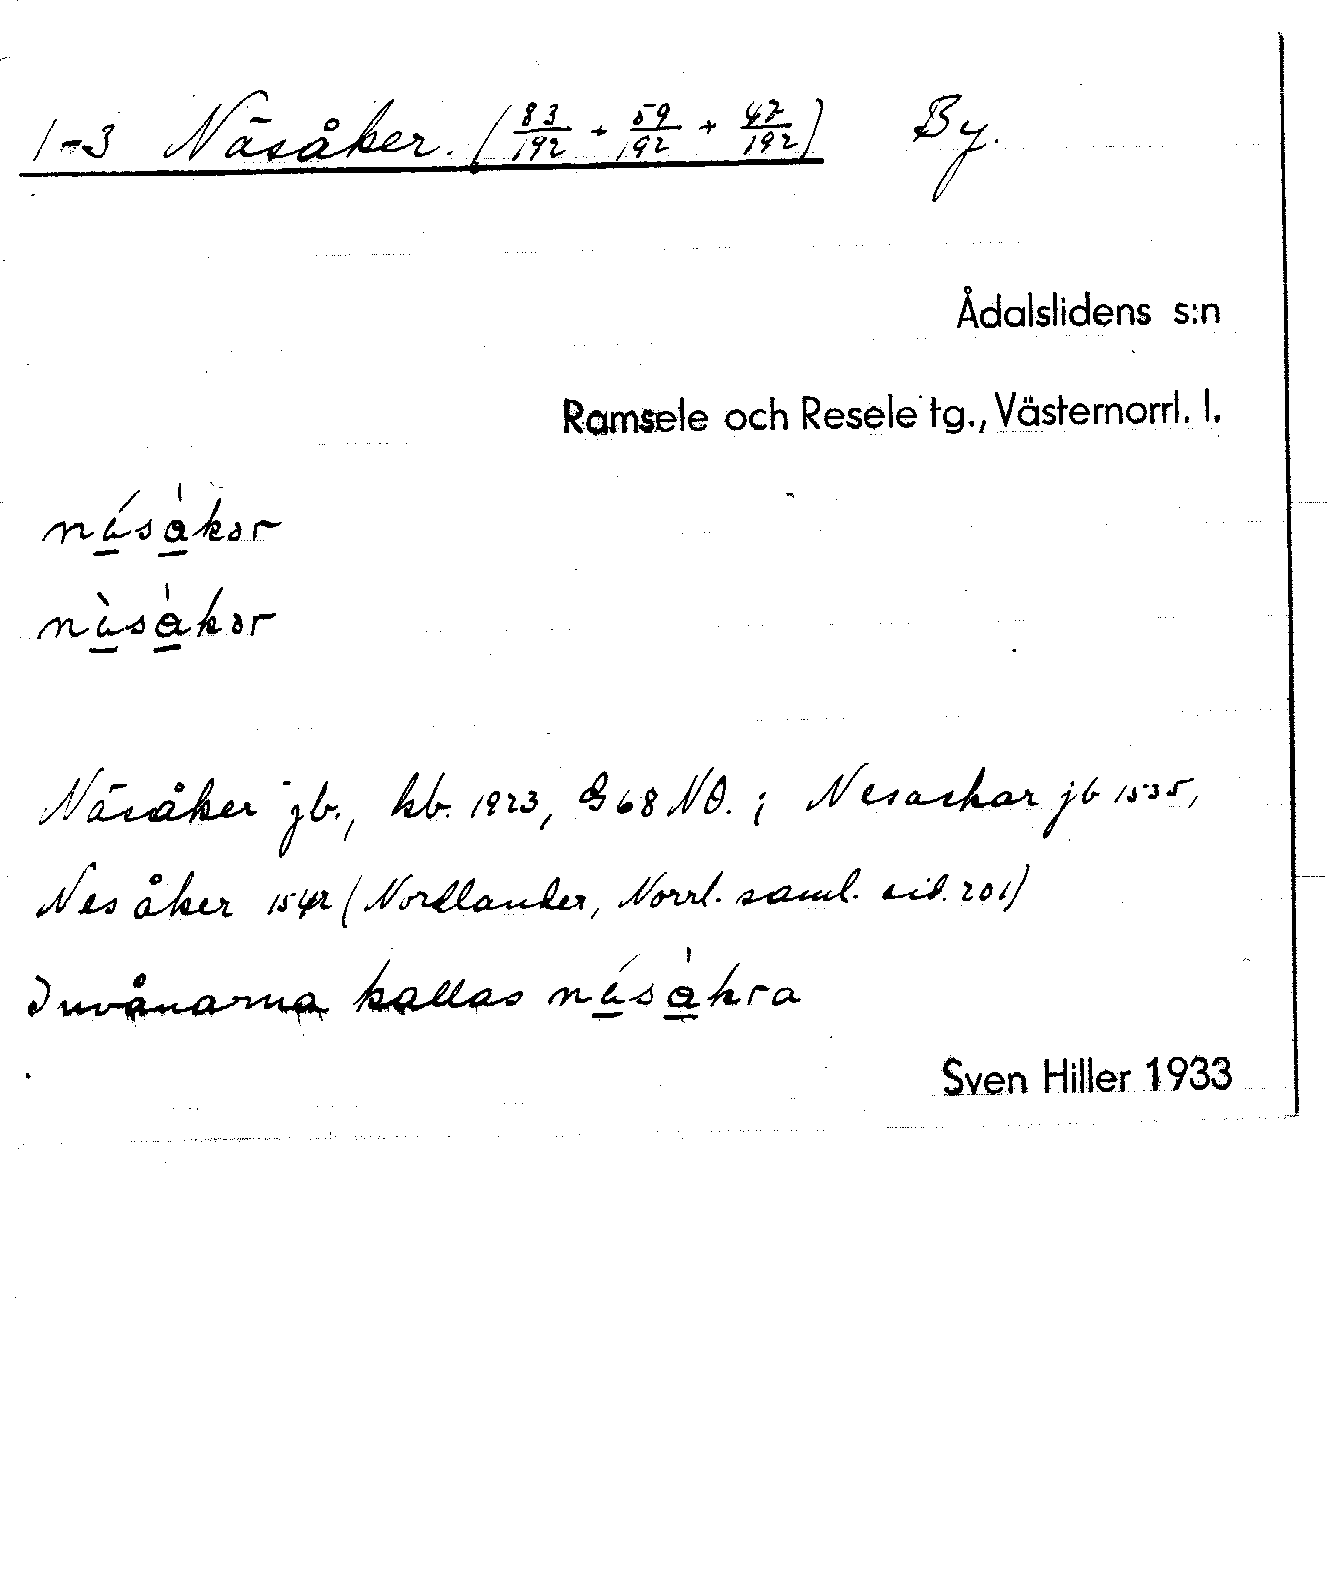 1-3 Näsåker. (83/192 + 59/192 + 42/192) By.
Ådalslidens s:n
Ramsele och Resele tg., Västernorrl. l.
Näsåker jb., kb. 1923, G 68 NO. ; Nesackar jb 1535,
Nes åker 1542 (Nordlander, Norrl. saml. sid. 201)
Invånarna kallas
Sven Hiller 1933